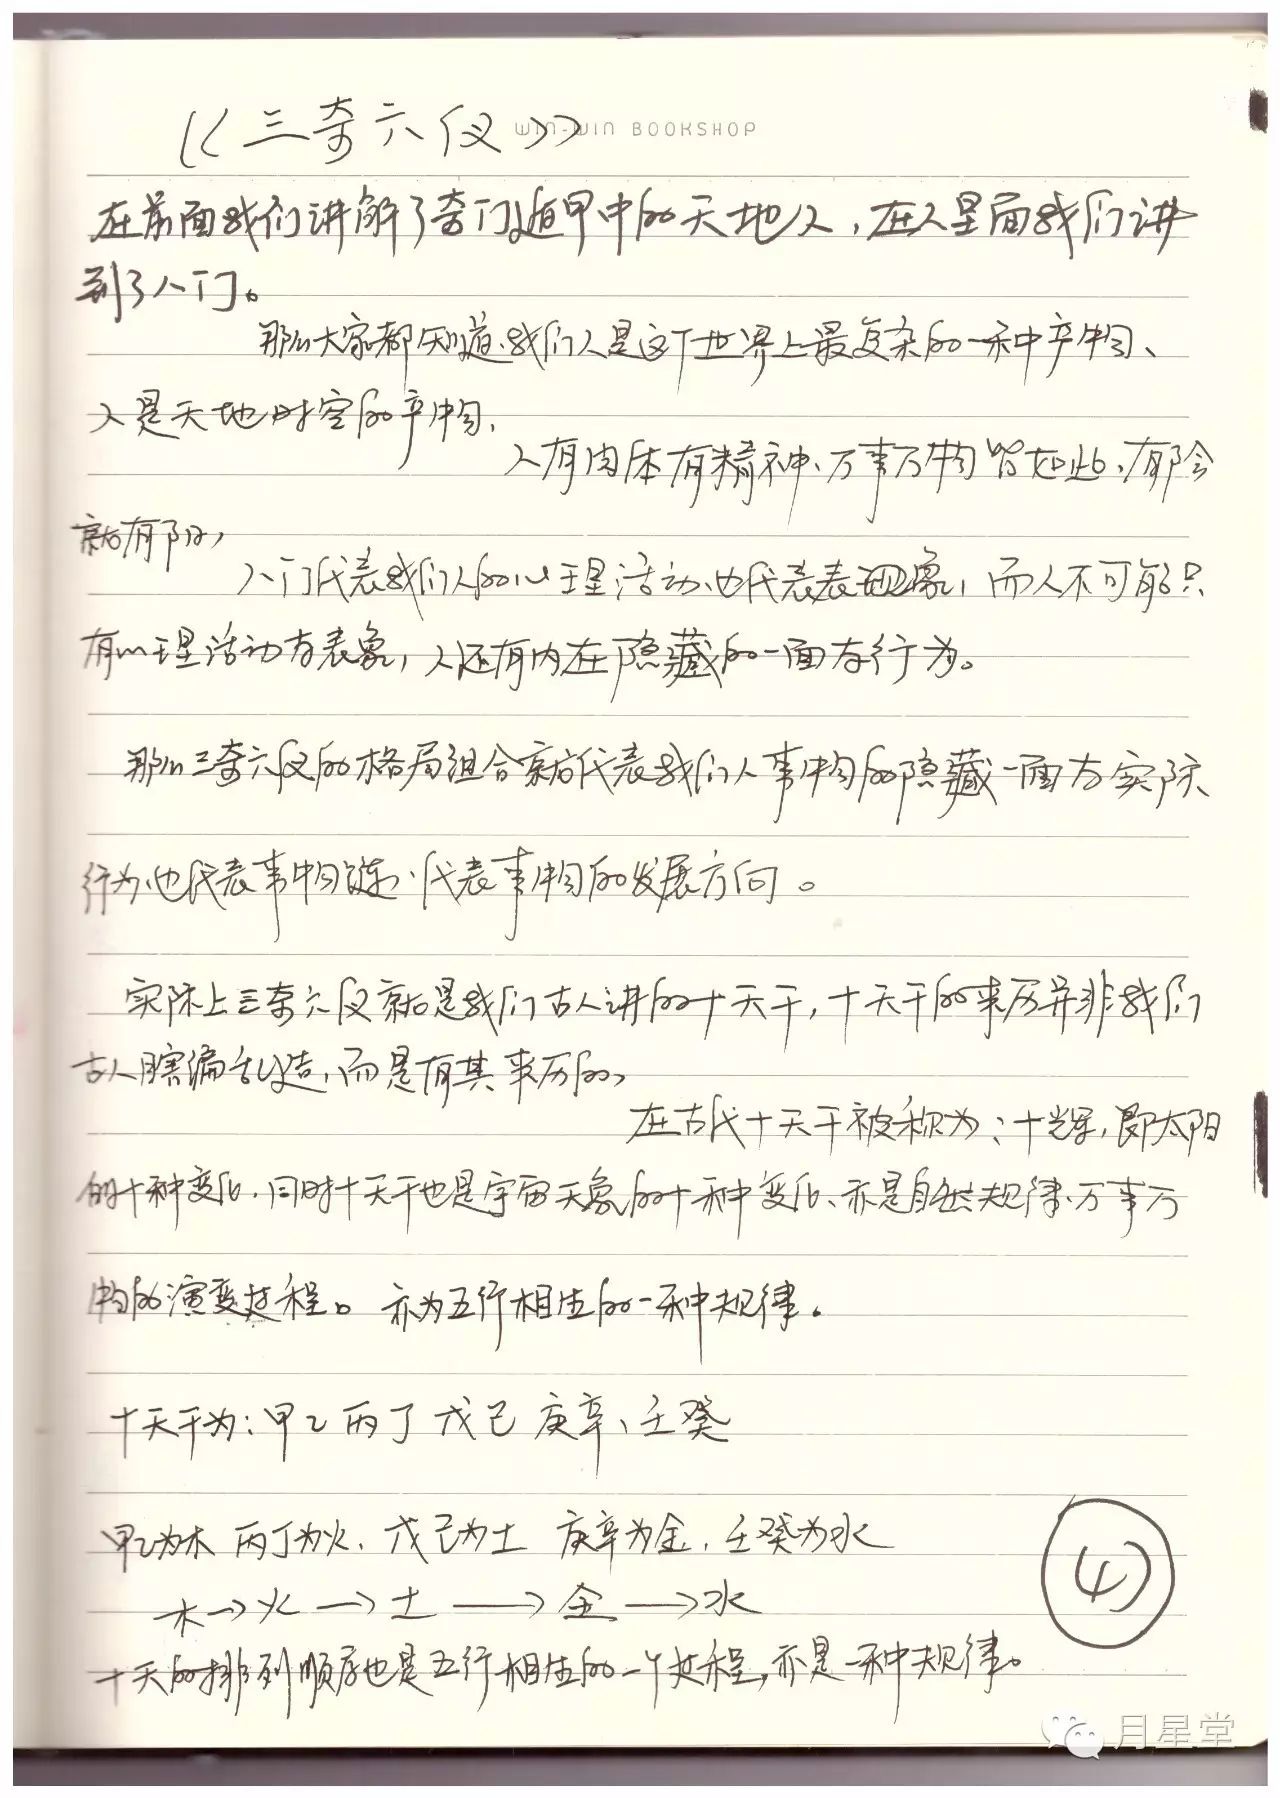 《三奇六仪》
WIN-WIN BOOKSHOP
在前面我们讲解了奇门遁甲中的天地人，在人层面我们讲
到了八门。
那么大家都知道、我们人是这个世界上最复杂的一种产物、
人是天地时空的产物、
人有肉体有精神、万事万物皆如此、有阴
就有阳，
八门代表我们人的心理活动、也代表表现象，而人不可能只
有心理活动与表象，人还有内在隐藏的一面与行为。
那么三奇六仪的格局组合就代表我们人事物的隐藏一面与实际
行为、也代表事物、代表事物的发展方向。
实际上三奇六仪就是我们古人讲的十天干，十天干的来历并非我们
古人瞎编乱造，而是有其来历的，
在古代十天干被称为：十辉，即太阳
的十种变化，同时十天干也是宇宙天象的十种变化、亦是自然规律、万事万
物的演变过程。亦为五行相生的一种规律。
十天干为：甲乙丙丁戊己庚辛、壬癸
甲乙为木 丙丁为火，戊己为土 庚辛为金，壬癸为水
木→火→土→金→水
十天的排列顺序也是五行相生的一个过程，亦是一种规律。
④
月星堂